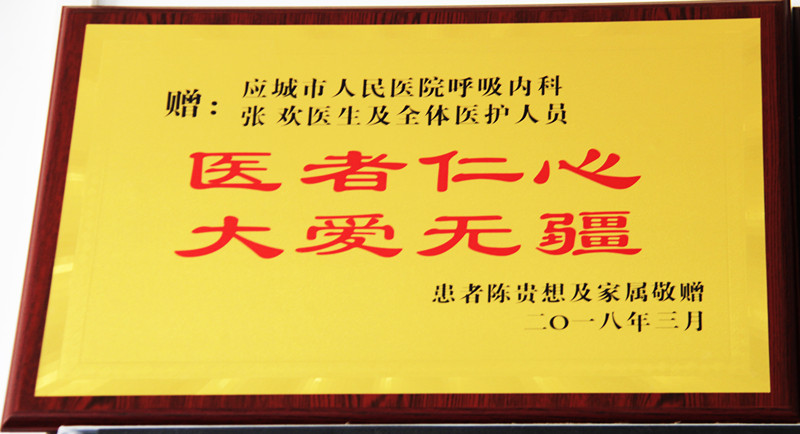 赠：
应城市人民医院呼吸内科
张欢医生及全体医护人员
医者仁心
大爱无疆
患者陈贵想及家属敬赠
二〇一八年三月